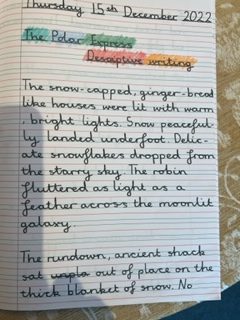 Thursday 15th December 2022
The Polar Express
Descriptive writing
The snow-capped, ginger-bread
like houses were lit with warm
, bright lights. Snow peaceful-
ly landed underfoot. Delic-
ate snowflakes dropped from
the starry sky. The robin
fluttered as light as a
feather across the moonlit
galaxy.
The rundown, ancient shack
sat out of place on the
thick blanket of snow. No